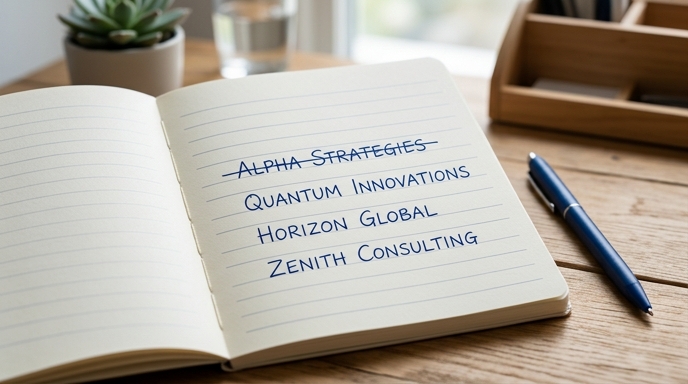 Alpha Strategies
Quantum Innovations
Horizon Global
Zenith Consulting